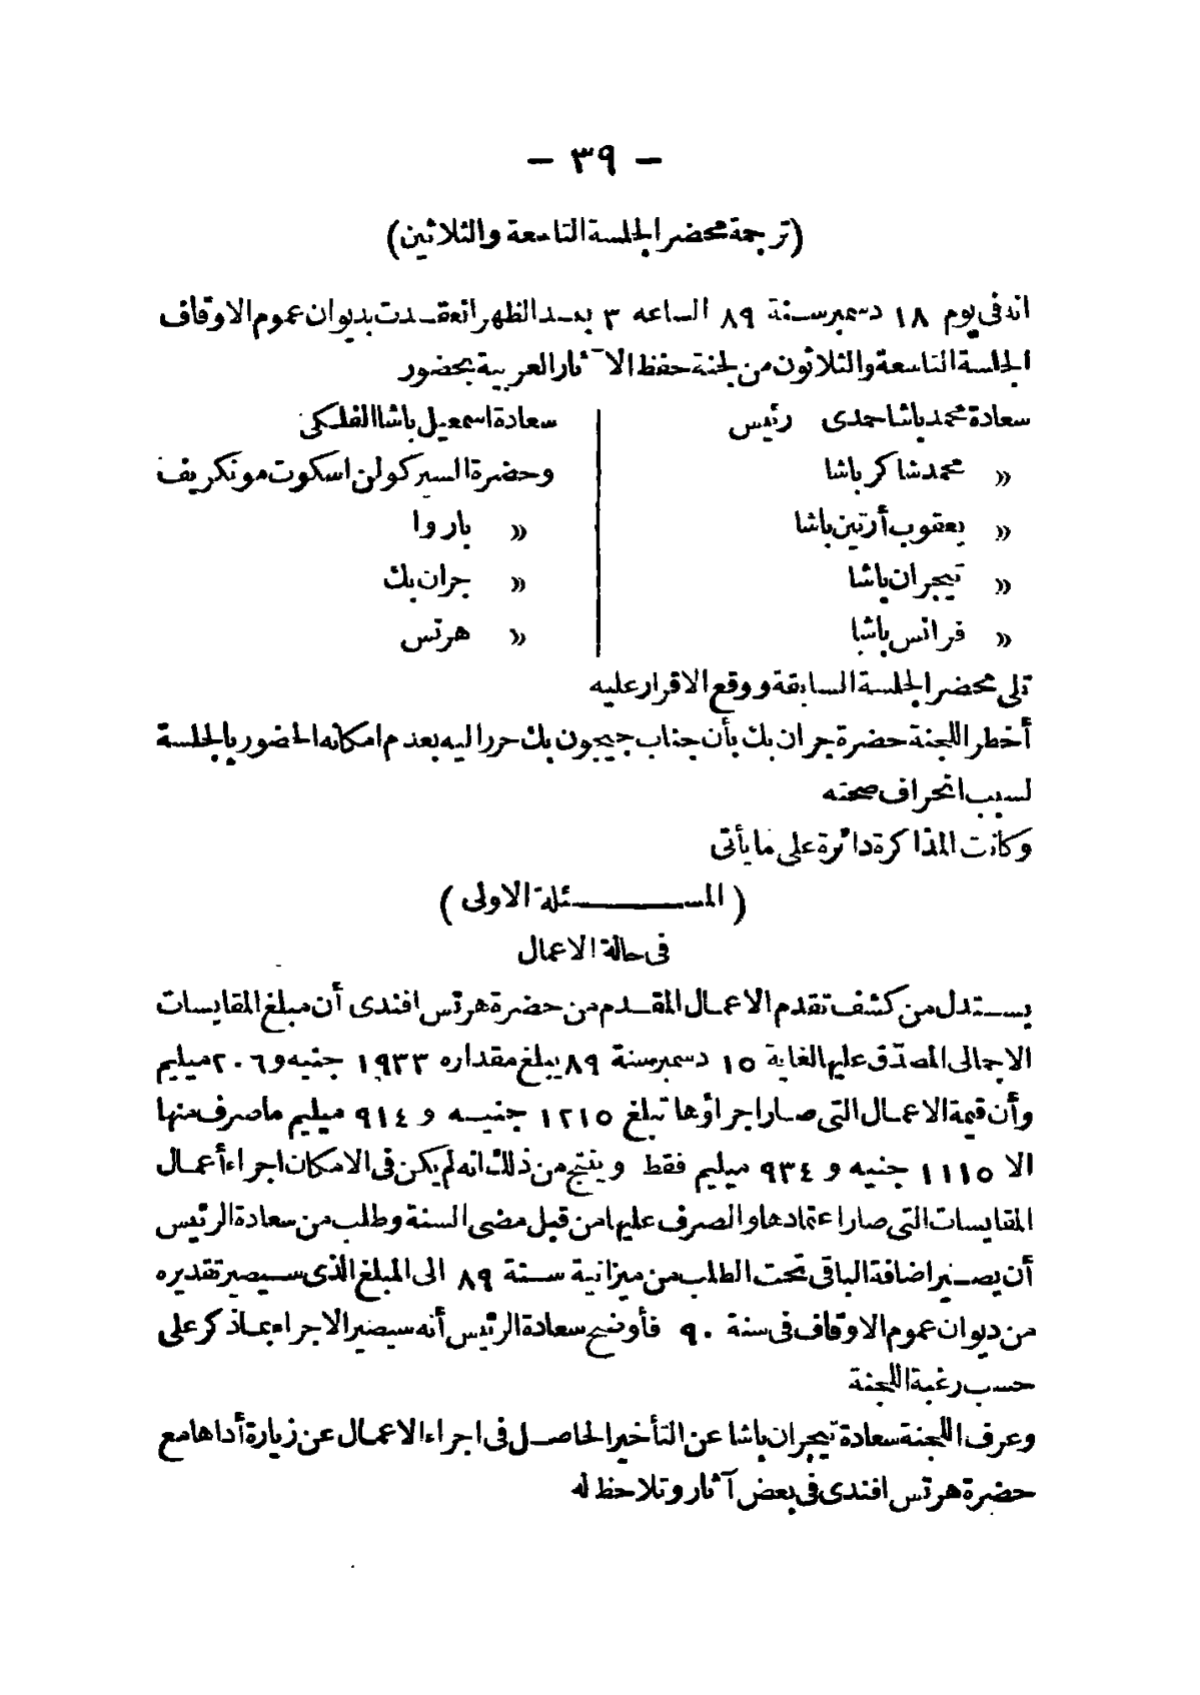 — ٣٩ —
(ترجمة محضر الجلسة التاسعة والثلاثين)
انه فى يوم ١٨ دسمبر سنة ٨٩ الساعه ٣ بعد الظهر انعقدت بديوان عموم الاوقاف
الجلسة التاسعة والثلاثون من لجنة حفظ الآثار العربية بحضور
سعادة محمد باشا حمدى رئيس
« محمد شاكر باشا
« يعقوب أرتين باشا
« تيجران باشا
« فرانس باشا
سعادة اسمعيل باشا الفلكى
وحضرة السير كولن اسكوت مونكريف
« باروا
« جران بك
« هرتس
تلى محضر الجلسة السابقة ووقع الاقرار عليه
أخطر اللجنة حضرة جران بك بأن جناب جيجون بك حرر اليه بعدم امكانه الحضور بالجلسة
لسبب انحراف صحته
وكانت المذاكرة دائرة على ما يأتى
(المسئلة الاولى)
فى حالة الاعمال
يستدل من كشف تقدم الاعمال المقدم من حضرة هرتس افندى أن مبلغ المقايسات
الاجمالى المصدّق عليها لغاية ١٥ دسمبر سنة ٨٩ يبلغ مقداره ١٩٣٣ جنيه و ٢٠٦ ميليم
وأن قيمة الاعمال التى صار اجراؤها تبلغ ١٢١٥ جنيه و ٩١٤ ميليم ما صرف منها
الا ١١١٥ جنيه و ٩٣٤ ميليم فقط وينتج من ذلك انه لم يكن فى الامكان اجراء أعمال
المقايسات التى صار اعتمادها والصرف عليها من قبل مضى السنة وطلب من سعادة الرئيس
أن يصير اضافة الباقى تحت الطلب من ميزانية سنة ٨٩ الى المبلغ الذى سيصير تقديره
من ديوان عموم الاوقاف فى سنة ٩٠ فأوضح سعادة الرئيس أنه سيصير الاجراء بماذكر على
حسب رغبة اللجنة
وعرف اللجنة سعادة تيجران باشا عن التأخير الحاصل فى اجراء الاعمال عن زيارة أداها مع
حضرة هرتس افندى فى بعض آثار وتلاحظ له